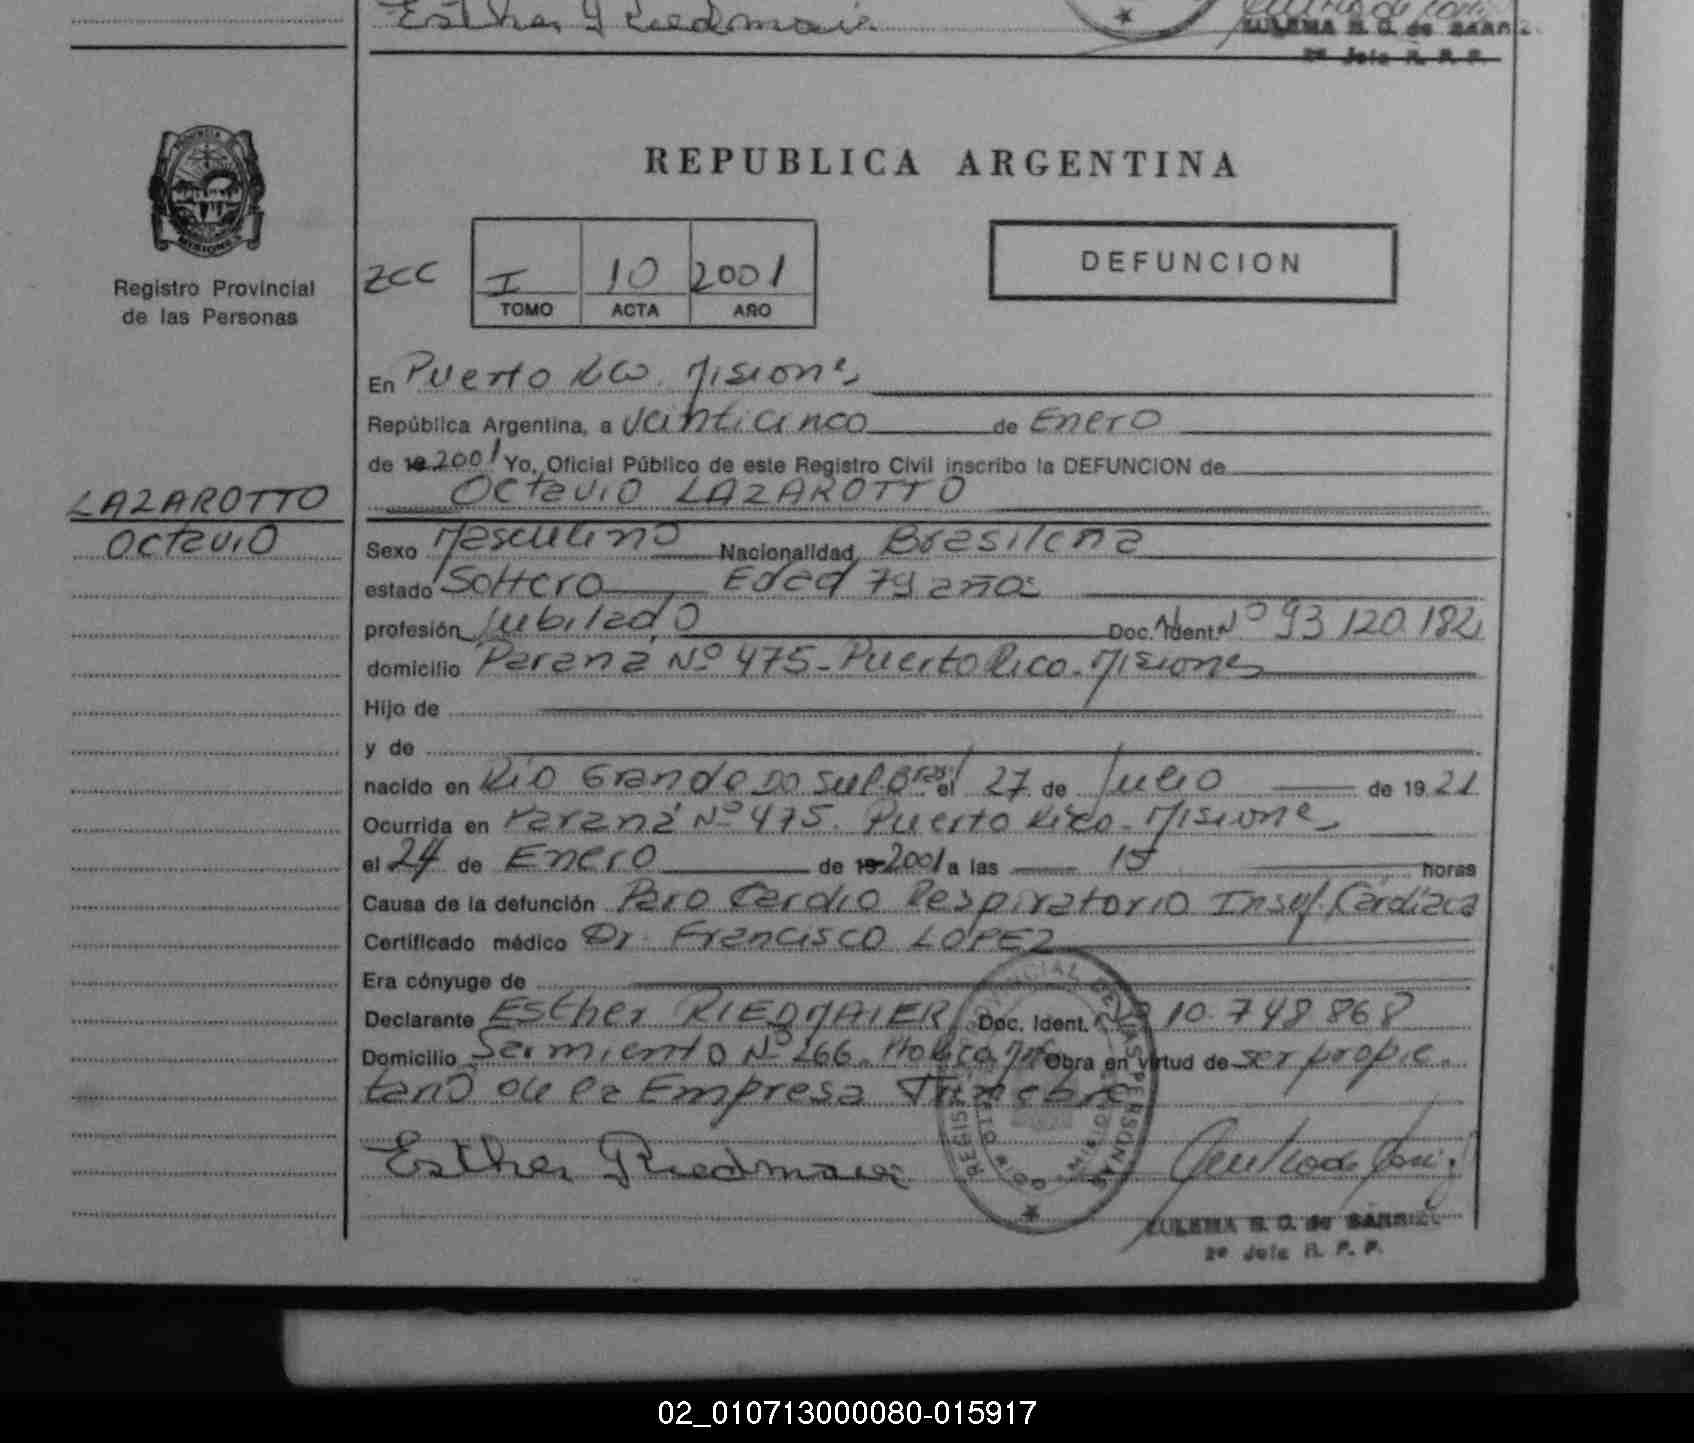 Esther Riedmaier
ZULEMA S. O. de SARRIZ
2º Jefe R. P. P.
REPUBLICA ARGENTINA
MISIONES
Registro Provincial
de las Personas
ZCC I 10 2001
TOMO ACTA AÑO
DEFUNCION
En Puerto Rico. Misiones
República Argentina, a Veinticinco de Enero
de 19 2001 Yo, Oficial Público de este Registro Civil inscribo la DEFUNCION de
Octavio LAZAROTTO
LAZAROTTO
Octavio
Sexo Masculino Nacionalidad Brasilena
estado Soltero Edad 79 años
profesión Jubilado Doc. Ident. Nº 93 120.182
domicilio Paraná Nº 475 - Puerto Rico - Misiones
Hijo de
y de
nacido en Rio Grande Do Sul Brasil el 27 de Julio de 19 21
Ocurrida en Paraná Nº 475. Puerto Rico - Misiones
el 24 de Enero de 19 2001 a las 15 horas
Causa de la defunción Paro Cardio Respiratorio Insuf. Cardiaca
Certificado médico Dr. Francisco LOPEZ
Era cónyuge de
Declarante Esther RIEDMAIER Doc. Ident. Nº 10.748 868
Domicilio Sarmiento Nº 266. Obra en virtud de ser propie-
tario de la Empresa Funebre
Esther Riedmaier
ZULEMA S. O. de SARRIZ
2º Jefe R. P. P.
02_010713000080-015917